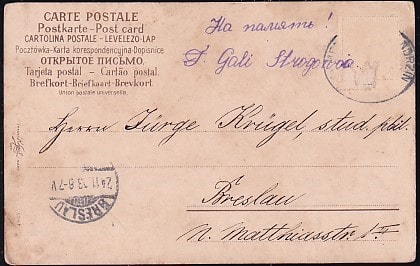 CARTE POSTALE
Postkarte-Post card
CARTOLINA POSTALE - LEVELEZŐ-LAP
Pocztówka-Karta korespondencyjna-Dopisnice
ОТКРЫТОЕ ПИСЬМО.
Tarjeta postal - Carlão postal.
Brefkort-Briefkaart-Brevkort.
Union postale universelle.
На память!
F. Gali
Herrn Jürge Krügel, stud. phil.
Breslau
N. Matthiasstr.
BRESLAU
24.11.13.6-7V.